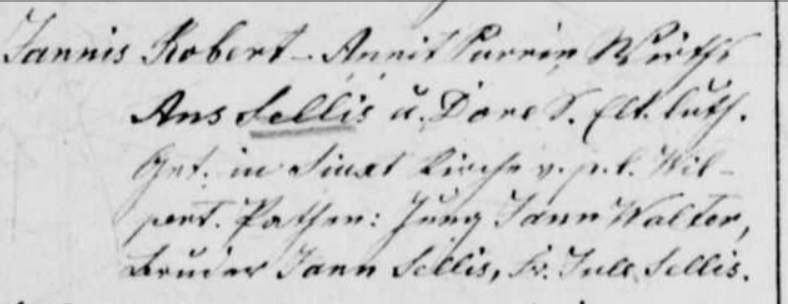 Jannis Robert - Annit Purrin Wirths
Ans Sellis u. Dore S. Elt. luth.
Get. in Siuxt Kirche v. p. l. Wil-
pert. Pathen: Jung Jann Walter,
Bruder Jann Sellis, Fr. Jule Sellis.